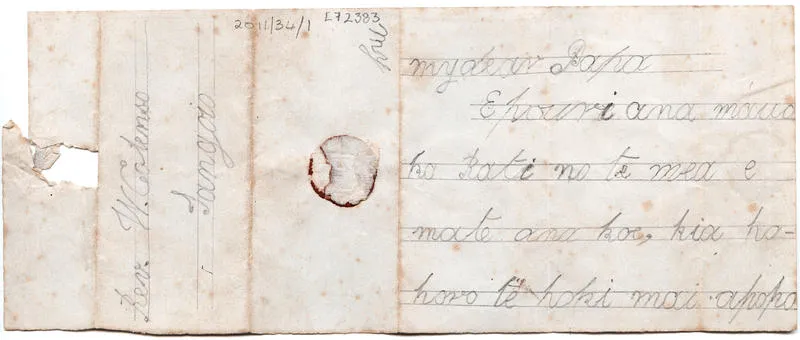 2011/34/1 L72383
my dear Papa
E pouri ana máua
ko Kati no te mea e
mate ana koe, kia ho-
horo te hoki mai apopo
Rev. W. Colenso
Tangoio